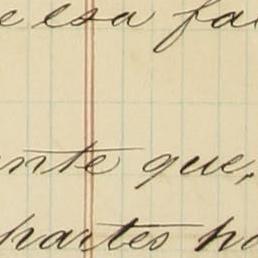 e esa fal
ente que,
partes ha